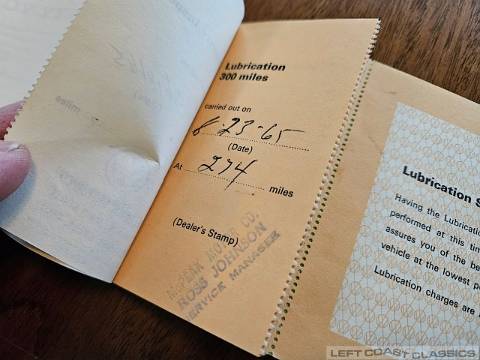 Lubrication
300 miles
carried out on
8-23-65
(Date)
At 274 miles
(Dealer's Stamp)
MOTOR CO.
ROSS JOHNSON
SERVICE MANAGER
Lubrication S
Having the Lubrication
performed at this tim
assures you of the be
vehicle at the lowest p
Lubrication charges are
LEFT COAST CLASSICS